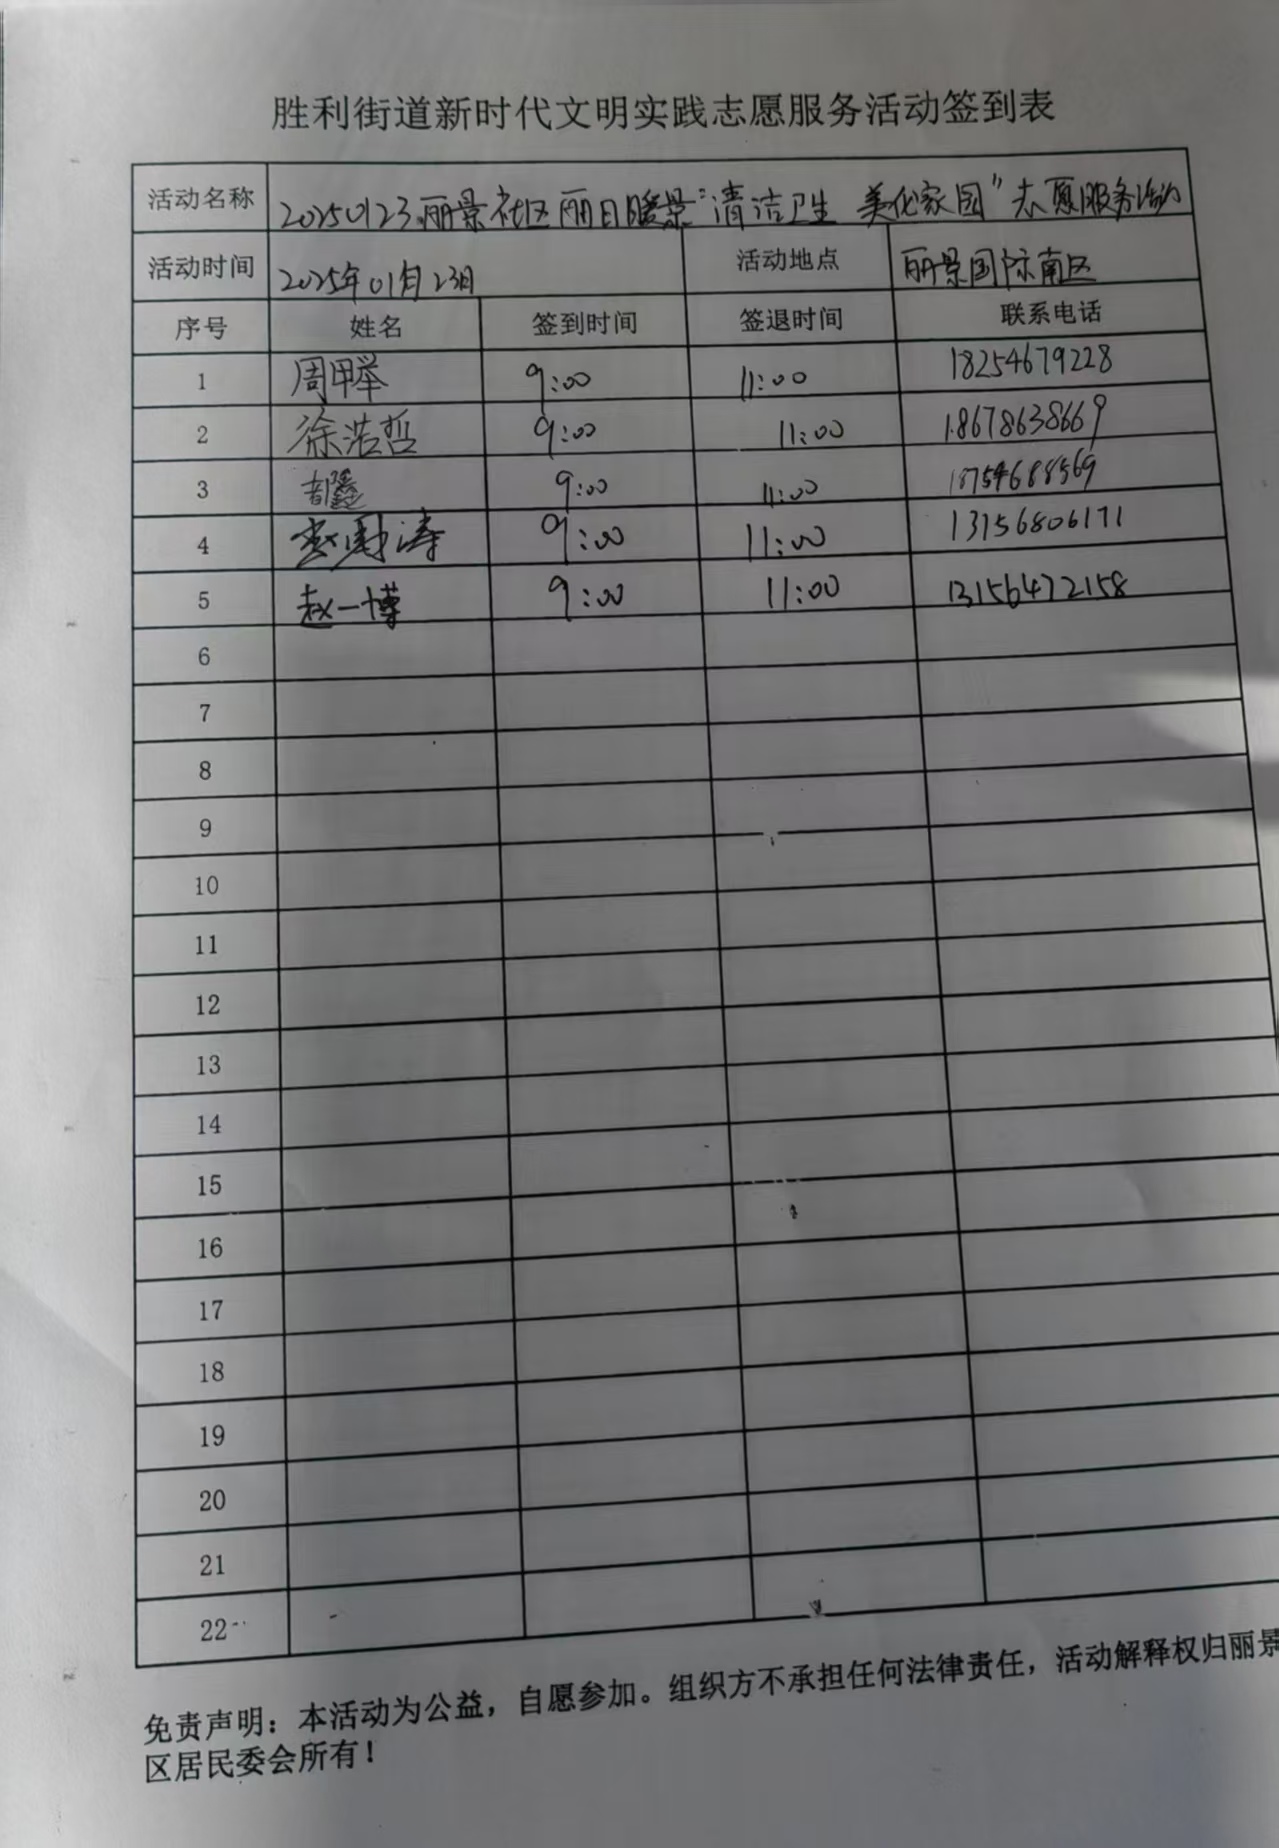 胜利街道新时代文明实践志愿服务活动签到表
活动名称 20250123丽景社区丽日暖景"清洁卫生 美化家园"志愿服务活动
活动时间 2025年01月23日 活动地点 丽景国际南区
序号 姓名 签到时间 签退时间 联系电话
1 周甲举 9:00 11:00 18254679228
2 徐浩哲 9:00 11:00 18678638669
3 9:00 11:00 18754688569
4 9:00 11:00 13156806171
5 赵一博 9:00 11:00 13156472158
6
7
8
9
10
11
12
13
14
15
16
17
18
19
20
21
22
免责声明：本活动为公益，自愿参加。组织方不承担任何法律责任，活动解释权归丽景
区居民委会所有！